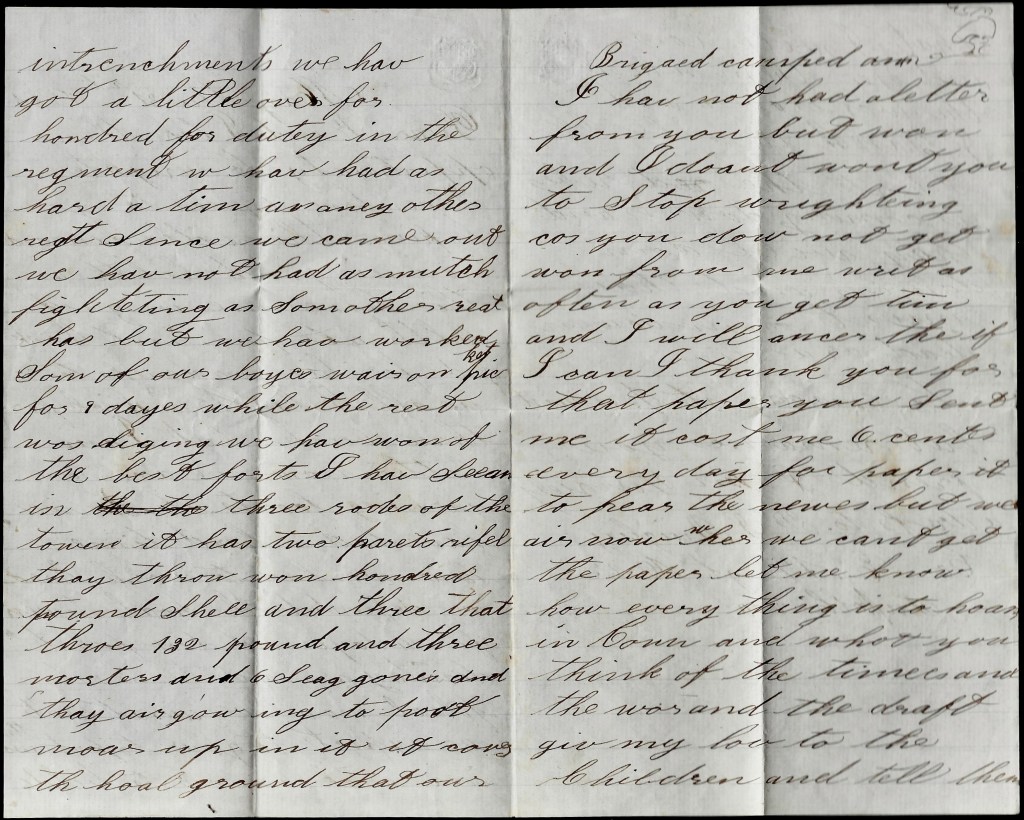 intrenchments we hav
got a little over for
hondred for dutey in the
regment w hav had as
hard a tim as aney other
regt Since we came out
we hav not had as mutch
fighteting as Som other reat
has but we hav worked
Som of our boyes wair on picket
for 9 dayes while the rest
was diging we hav won of
the best forts I hav Seean
in the the three rodes of the
towen it has two parets rifel
thay throw won hondred
pound Shell and three that
throes 132 pound and three
morters and 6 Seag gones and
thay air gow ing to poot
moar up in it it covers
th hoal ground that our
Brigaed camped
I hav not had a letter
from you but won
and I doant wont you
to Stop wrighteing
cos you dow not get
won from me writ as
often as you get tim
and I will ancer the if
I can I thank you for
that paper you Sent
me it cost me 6 cents
every day for paper it
to hear the newes but we
air now wher we cant get
the paper let me know
how every thing is to hoam
in Conn and whot you
think of the times and
the war and the draft
giv my lov to the
Children and tell them